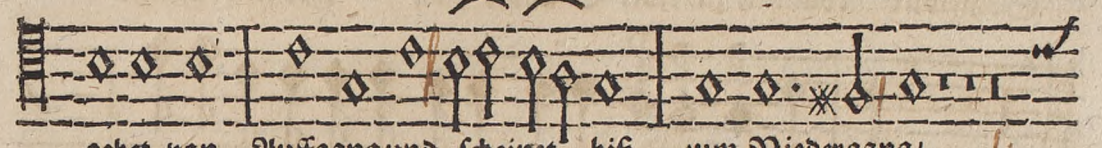 gehet von Auffgang und scheinet biß zum Niedergang/